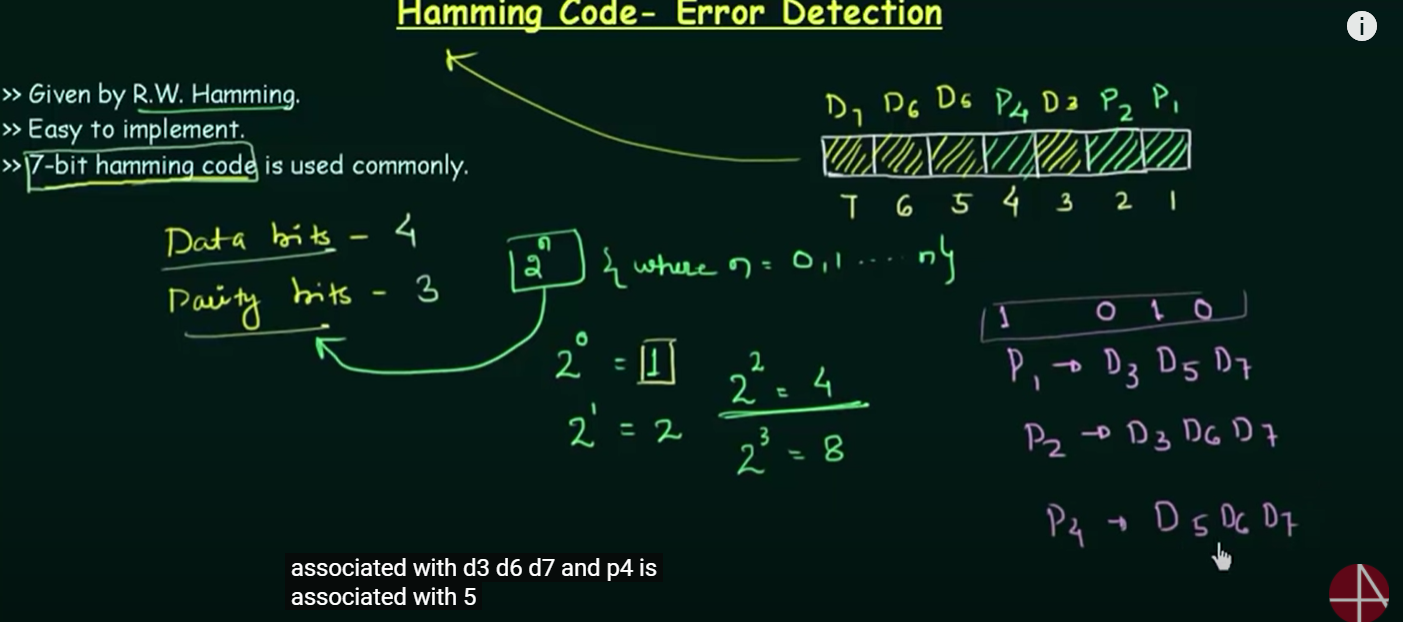 Hamming Code- Error Detection
>> Given by R.W. Hamming.
>> Easy to implement.
>> 7-bit hamming code is used commonly.
D7 D6 D5 P4 D3 P2 P1
7 6 5 4 3 2 1
Data bits - 4
Parity bits - 3
2^n { where n = 0, 1 .... n}
2^0 = 1
2^1 = 2
2^2 = 4
2^3 = 8
1 0 1 0
P1 → D3 D5 D7
P2 → D3 D6 D7
P4 → D5 D6 D7
associated with d3 d6 d7 and p4 is
associated with 5
i